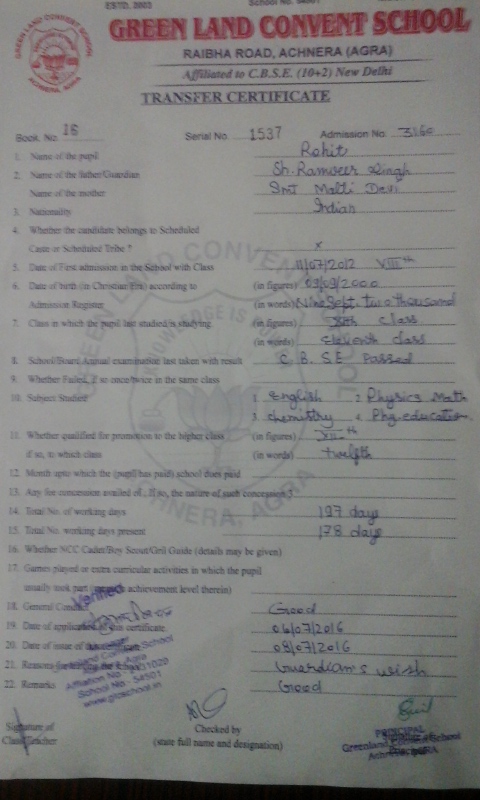 ESTD. 2003 School No. 54501
GREEN LAND CONVENT SCHOOL
RAIBHA ROAD, ACHNERA (AGRA)
Affiliated to C.B.S.E. (10+2) New Delhi
TRANSFER CERTIFICATE
Book. No. 16 Serial No. 1537 Admission No. 3160
1. Name of the pupil Rohit
2. Name of the father/Guardian Sh. Ramveer Singh
Name of the mother Smt Malti Devi
3. Nationality Indian
4. Whether the candidate belongs to Scheduled
Caste or Scheduled Tribe ? x
5. Date of First admission in the School with Class 11/07/2012 VIIIth
6. Date of birth (in Christian Era) according to (in figures) 09/09/2000
Admission Register (in words) Nine Sept. two thousand
7. Class in which the pupil last studied/is studying (in figures) XIth class
(in words) eleventh class
8. School/Board Annual examination last taken with result C.B.S.E Passed
9. Whether Failed, if so once/twice in the same class
10. Subject Studied 1. English 2. Physics Math
3. chemistry 4. Phy. education
11. Whether qualified for promotion to the higher class (in figures) XIIth
if so, to which class (in words) twelfth
12. Month upto which the (pupil has paid) school dues paid
13. Any fee concession availed of.. If so, the nature of such concession ?
14. Total No. of working days 197 days
15. Total No. working days present 178 days
16. Whether NCC Cadet/Boy Scout/Gril Guide (details may be given)
17. Games played or extra curricular activities in which the pupil
usually took part achievement level therein)
18. General Conduct Good
19. Date of application of this certificate 06/07/2016
20. Date of issue of 08/07/2016
21. Reasons for leaving the school Guardian's wish
22. Remarks Good
Verified
School No - 54501
Signature of Class Teacher
Checked by
(state full name and designation)
PRINCIPAL
Greenland School